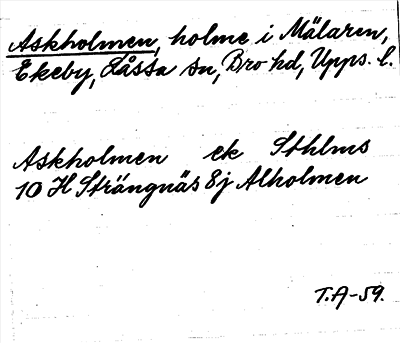 Askholmen, holme i Mälaren,
Ekeby, Låssa sn, Bro hd, Upps. l.
Askholmen ek Sthlms
10 H Strängnäs 8j Alholmen
T.A-59.